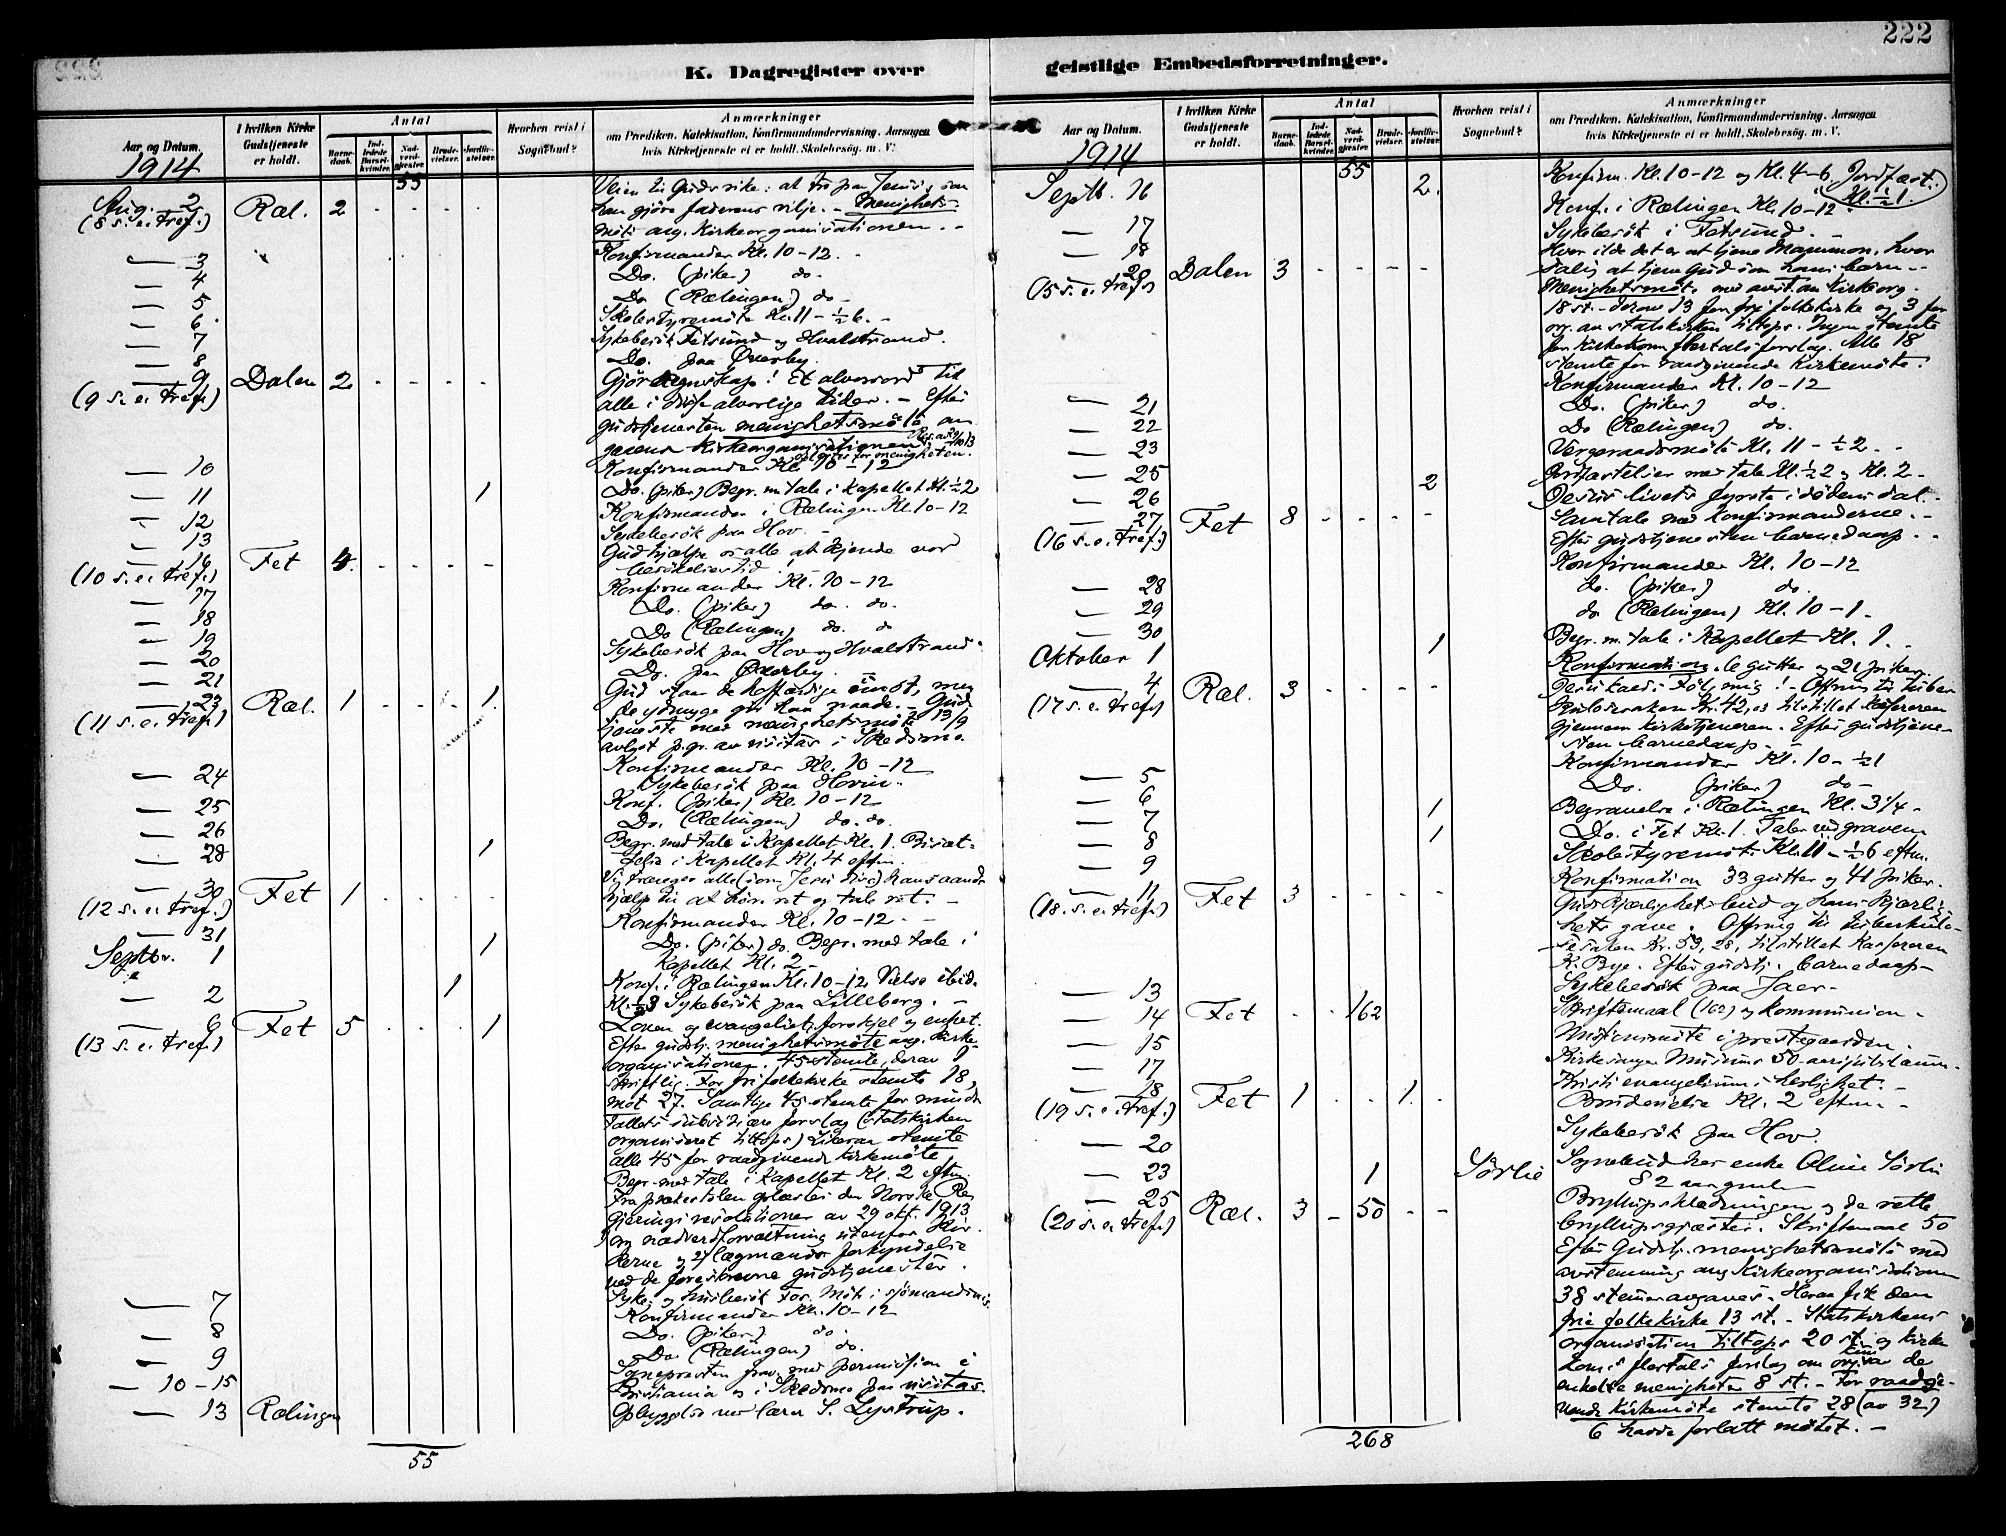 222
K. Dagregister over
geistlige Embedsforretninger.
Aar og Datum.
I hvilken Kirke Gudstjeneste er holdt.
Antal
Barnedaab.
Indledede Barselkvinder.
Nadverdgjester.
Brudevielser.
Jordfæstelser.
Hvorhen reist i Sognebud?
Anmærkninger
om Prædiken, Katekisation, Konfirmandundervisning, Aarsagen
hvis Kirketjeneste ei er holdt, Skolebesög. m. V.
1914
55
Aug. 2 Ræl. 2 Veien til Guds rike: at tro paa Jesus, som
(8 s. e. tref.) han gjöre faderens vilje. - Menighets-
möte ang. Kirkeorganisationen. -
3 Konfirmander Kl. 10-12. -
4 Do. (piker) do.
5 Do (Rælingen) do -
6 Skolestyremöte Kl. 11 - ½6. -
7 Sykebesök Fetsund og Hvalstrand.
8 Do. paa Överby.
9 Dalen 2 Gjör regnskap! Et alvorsord til
(9 s. e. tref.) alle i disse alvorlige tider. - Efter
gudstjenesten menighetsmöte an
gaaende Kirkeorganisationen.
Konfirmander Kl. 10-12
10
11 1 Do. (piker) Begr. m. tale i kapellet Kl. ½2
12 Konfirmander i Rælingen Kl. 10-12
13 Sykebesök paa Hov. -
16 Fet 4. Gud hjælpe os alle at kjende vor
(10 s. e. tref.) besökelsestid!
17 Konfirmander Kl. 10-12
18 Do. (piker) do. do.
19 Do (Rælingen) do. do
20 Sykebesök paa Hov og Hvalstrand.
21 Do. paa Överby.
23 Ræl. 1 1. Gud staar de hoffærdige imot, men
(11 s. e. tref.) de ydmyge gir han naade. - Gud
tjeneste med menighetsmöte 13/9
avlyst p. gr. av visitas i Skedsmo.
24 Konfirmander Kl. 10-12
Sykebesök paa Hovin.
25 Konf. (piker) Kl. 10-12
26 Do. (Rælingen) do. do.
28 1 Begr. med tale i Kapellet Kl. 1. Bisæt-
telse i Kapellet Kl. 4 eftm.
30 Fet 1 Vi trænger alle
(12 s. e. tref.) hjælp til at höre ret og tale ret. -
31 Konfirmander Kl. 10-12 -
Septbr. 1 1 Do. (piker) do. Begr. med tale i
Kapellet Kl. 2 -
2 1 Konf. i Rælingen Kl. 10-12. Vielse ibid.
Kl. ½3 Sykebesök paa Lilleborg. -
6 Fet 5 1 Loven og evangeliets forskjel og enhet.
(13 s. e. tref.) Efter gudstj. menighetsmöte ang. Kirke-
organisationen. 45 stemte, derav 1
skriftlig. For fri folkekirke stemte 18,
mot 27. Samtlige 45 stemte for mindre
tallets subsidiære forslag (statskirken
organiseret tiltops) Likesaa stemte
alle 45 for raadgivende kirkemöte
Begr. med tale i Kapellet Kl. 2 eftm.
Fra prækestolen oplæstes den Norske Re
gjerings resolutioner av 29 okt. 1913
1) om nadverdforvaltning utenfor Kir
kerne og 2) lægmænds forkyndelse
ved de foreskrevne gudstjenester.
7 Syke- og husbesök For. Möte i sjömandsmis.
Konfirmander Kl. 10-12
8 Do. (piker) do.
9 Do. (Rælingen) do.
10-15 Sognepresten frav. med permission i
Kristiania og i Skedsmo paa visitas.
13 Rælingen Opbyggelse ved lærer S. Lystrup.
55
Aar og Datum.
I hvilken Kirke Gudstjeneste er holdt.
Antal
Barnedaab.
Indledede Barselkvinder.
Nadverdgjester.
Brudevielser.
Jordfæstelser.
Hvorhen reist i Sognebud?
Anmærkninger
om Prædiken, Katekisation, Konfirmandundervisning, Aarsagen
hvis Kirketjeneste ei er holdt, Skolebesög. m. V.
1914
55
Septb. 16 2. Konfirm. Kl. 10-12 og Kl. 4-6. Jordfæst.
Kl. ½1.
17 Konf. i Rælingen Kl. 10-12.
18 Sykebesök i Fetsund. -
20 Dalen 3 Hvor ilde det er at tjene Mammon, hvor
(15 s. e. tref.) salig at tjene Gud som hans barn -
Menighetsmöte med avst. om Kirkeorg.
18 st. - derav 13 for fri folkekirke og 3 for
org. av statskirken tiltops. Ingen stemte
for Kirkekom. flertals forslag. Alle 18
stemte for raadgivende Kirkemöte.
21 Konfirmander Kl. 10-12
22 Do. (piker) do.
23 Do (Rælingen) do.
25 Vergeraadsmöte Kl. 11 - ½2. -
26 2 Jordfæstelser med tale Kl. ½2 og Kl. 2 -
27 Fet 8 Jesus livets fyrste i dödens dal. -
(16 s. e. tref.) Samtale med konfirmanderne. -
Efter gudstjenesten barnedaap. -
28 Konfirmander Kl. 10-12
29 do. (piker) do.
30 do (Rælingen) Kl. 10-1.
Oktober 1 1 Begr. m. tale i Kapellet Kl. 1. -
4 Ræl. 3 Konfirmation. 6 gutter og 21 piker.
(17 s. e. tref.) Jesu kald: Fölg mig! - Offring til tuber
kulosesaken Kr. 42,03 tilstillet kasereren
gjennem kirketjeneren. Efter gudstjene-
sten barnedaap. -
5 Konfirmander Kl. 10-½1
6 Do. (piker) do -
7 1 Begravelse i Rælingen Kl. 3¼ -
8 1 Do. i Fet Kl. 1. Taler ved graven
9 Skolestyremöte Kl. 11 - ½6 eftm.
11 Fet 3 Konfirmation 33 gutter og 41 piker.
(18. s. e. tref.) Guds Kjærlighetsbud og hans Kjærlig-
hets gave. Offring til tuberkulo-
sesaken Kr. 53,28, tilstillet Kassereren
K. Bye. Efter gudstj. barnedaap -
13 Sykebesök paa Jaer -
14 Fet 162 Skriftemaal (162) og kommunion -
15 Misjonsmöte i prestegaarden.
17
18 Fet 1 1. Kristi evangelium i herlighet. -
(19 s. e. tref.) Brudevielse Kl. 2 eftm. -
20 Sykebesök paa Hov.
23 1 Sörlie Sognebud hos enke Oline Sörli
82 aar gml.
25 Ræl. 3 50 Bryllupsklædningen og de rette
(20 s. e. tref.) bryllupsgjæster. Skriftemaal 50
Efter Gudstj. menighetsmöte med
avstemning ang Kirkeorganisationen
38 stemer avgaves. Herav fik den
frie folkekirke 13 st. - Statskirkens
organisation tiltops 20 st. og kirke
kom.s flertals forslag om organ. kun av de
enkelte menigheter 8 st. - For raadgi-
vende Kirkemöte stemte 28 (av 32)
6 hadde forlatt mötet. -
268